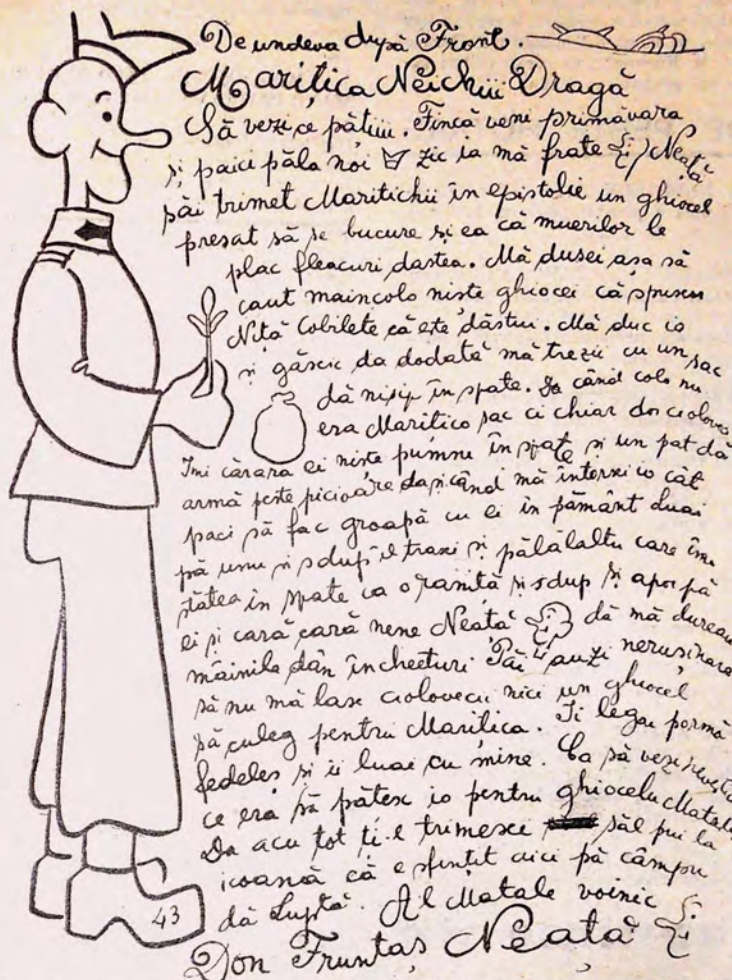 De undeva după Front.
Marițica Neichii Dragă
Să vezi ce pățiiu. Fincă veni primăvara
și paici păla noi zic ia mă frate Neață
săi trimet Maritichii în epistolie un ghiocel
presat să se bucure și ea că muerilor le
plac fleacuri dastea. Mă dusei așa să
caut maincolo niște ghiocei că spusese
Niță Cobilete că este dăștia. Mă duc io
și găsesc da dodată mă trezii cu un sac
dă nisip în spate. Ia când colo nu
era Maritico sac ci chiar doi ciolovec
Imi cărara ei niște pumni în spate și un pat dă
armă peste picioare dasicând mă întorsei io cât
paci să fac groapă cu ei în pământ luai
pă unu și sdup îl trasei și pălălaltu care îmi
stătea în spate ca o raniță și sdup și apoi pă
ei și cară cară nene Neață dă mă dureau
mâinile dân încheeturi Păi auzi nerușinare
să nu mă lase ciolovecii nici un ghiocel
să culeg pentru Maritica. Ii legai pormă
fedeleș și ii luai cu mine. Ca să vezi nevestă
ce era să pățesc io pentru ghiocelu Matale
Da acu tot ți-l trimesei săl pui la
icoană că e sfințit aici pă câmpu
dă Luptă. Al Matale voinic
Don Fruntaș Neață
43